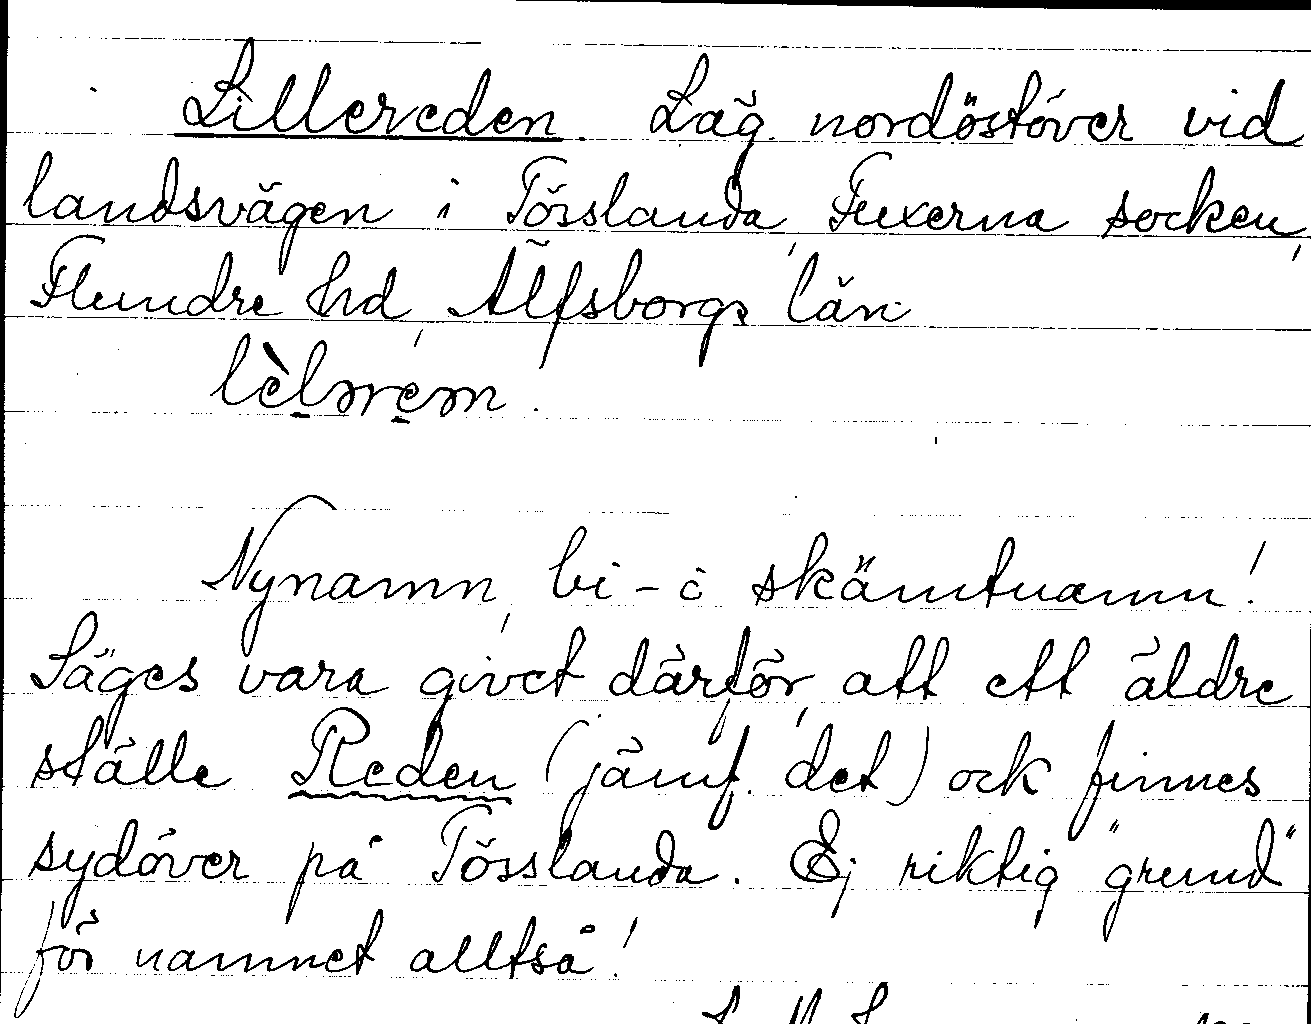 Lillereden. Låg nordöstöver vid
landsvägen i Tösslanda, Fuxerna socken,
Flundre hd, Älfsborgs län.
Nynamn, bi- o skämtnamn!
Säges vara givet därför, att ett äldre
ställe Reden (jämf. det) ock finnes
sydöver på Tösslanda. Ej riktig "grund"
för namnet alltså!